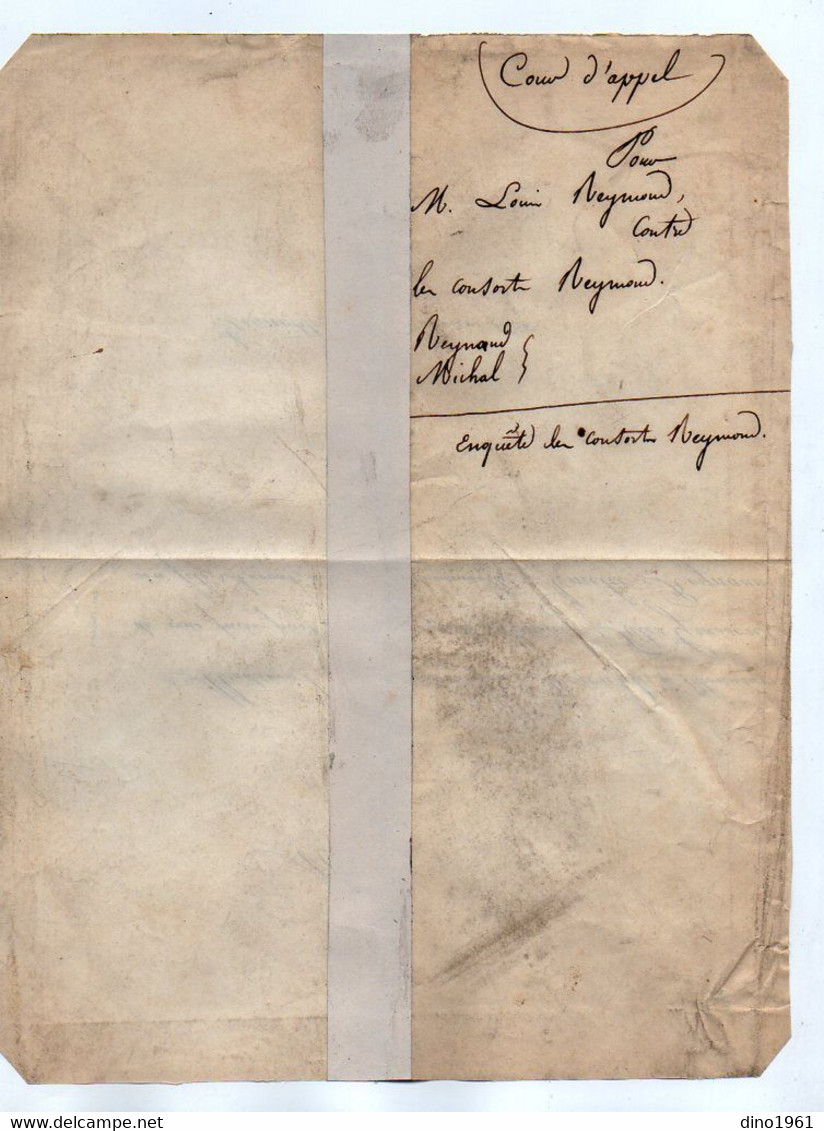 Cour d'appel
Pour
M. Louis Reymond,
Contre
les consorts Reymond.
Reynaud
Michal
Enquête des consorts Reymond.
dino1961